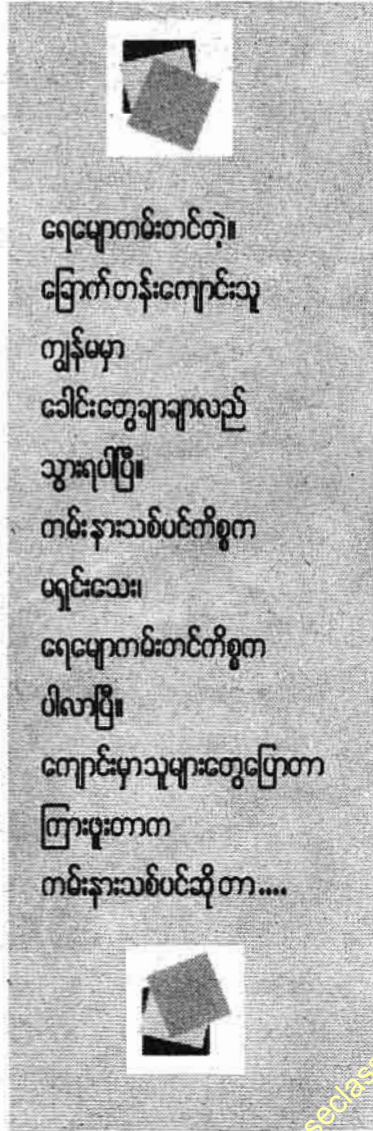 ရေမျောကမ်းတင်တဲ့။
ခြောက်တန်းကျောင်းသူ
ကျွန်မမှာ
ခေါင်းတွေချာချာလည်
သွားရပါပြီ။
ကမ်းနားသစ်ပင်ကိစ္စက
မရှင်းသေး၊
ရေမျောကမ်းတင်ကိစ္စက
ပါလာပြီ။
ကျောင်းမှာသူများတွေပြောတာ
ကြားဖူးတာက
ကမ်းနားသစ်ပင်ဆိုတာ....